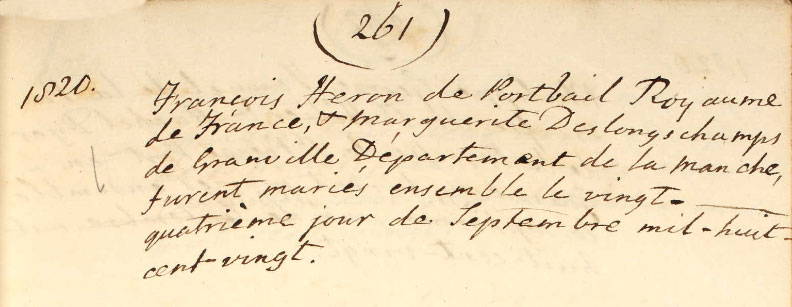 (261)
1820.
François Heron de Portbail Royaume
de France, & Marguerite Deslongschamps
de Granville Département de la Manche,
furent mariés ensemble le vingt-
quatrième jour de Septembre mil-huit-
cent-vingt.